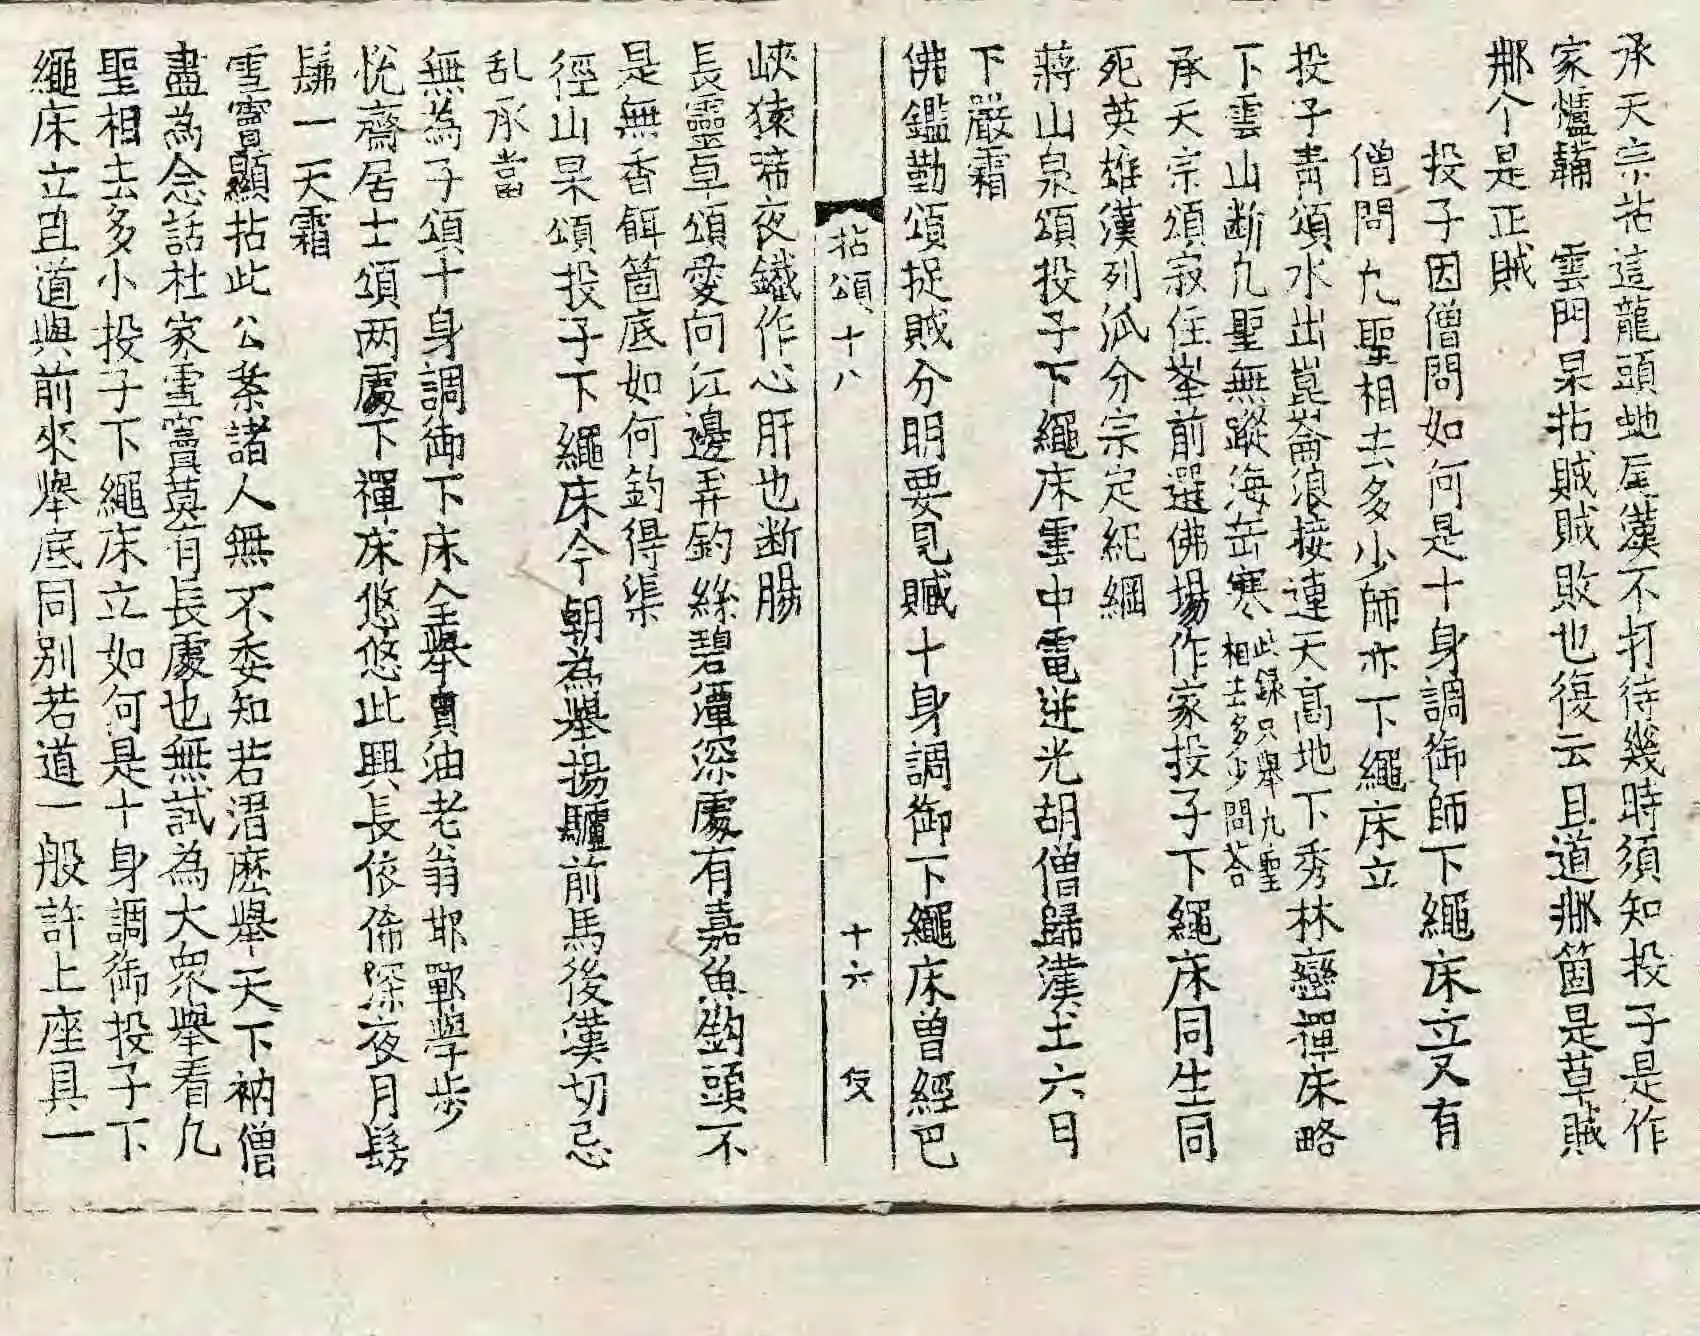 承天宗拈這龍頭虵尾漢不打待幾時須知投子是作
家爐鞴　雲門杲拈賊賊敗也復云且道那箇是草賊
那个是正賊
投子因僧問如何是十身調御師下繩床立又有
僧問九聖相去多少師亦下繩床立
投子青頌水出崑崙浪接連天高地下秀林巒禪床略
下雲山断凡聖無蹤海岳寒 此録只舉九聖
相去多少問荅
承天宗頌寂住峯前選佛場作家投子下繩床同生同
死英雄漢列派分宗定紀綱
蔣山泉頌投子下繩床雲中電迸光胡僧歸漢土六日
下嚴霜
佛鑑勤頌捉賊分明要見贓十身調御下繩床曾經巴
拈頌十八　十六
峽猿啼夜鐵作心肝也断腸
長靈卓頌愛向江邊弄釣絲碧潭深處有嘉魚鈎頭不
是無香餌箇底如何釣得渠
徑山杲頌投子下繩床今朝為舉揚驢前馬後漢切忌
乱承當
無為子頌十身調御下床全舉賣油老翁邯鄲學步
悅齋居士頌两處下禪床悠悠此興長依俙深夜月髣
髴一天霜
雪竇顯拈此公案諸人無不委知若溍麽舉天下衲僧
盡為念話杜家雪竇莫有長處也無試為大衆舉看凡
聖相去多小投子下繩床立如何是十身調御投子下
繩床立且道與前來舉底同別若道一般許上座具一